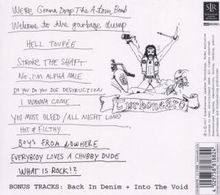 WE'RE GONNA DROP THE A-BOMB BOMB
WELCOME TO THE GARBAGE DUMP
HELL TOUPÉE
STROKE THE SHAFT
NO, I'M ALPHA MALE
DO YOU DO YOU DIG DESTRUCTION
I WANNA COME
YOU MUST BLEED/ALL NIGHT LONG
HOT & FILTHY
BOYS FROM NOWHERE
EVERYBODY LOVES A CHUBBY DUDE
WHAT IS ROCK!?
Turbonegro
BONUS TRACKS: Back In Denim + Into The Void